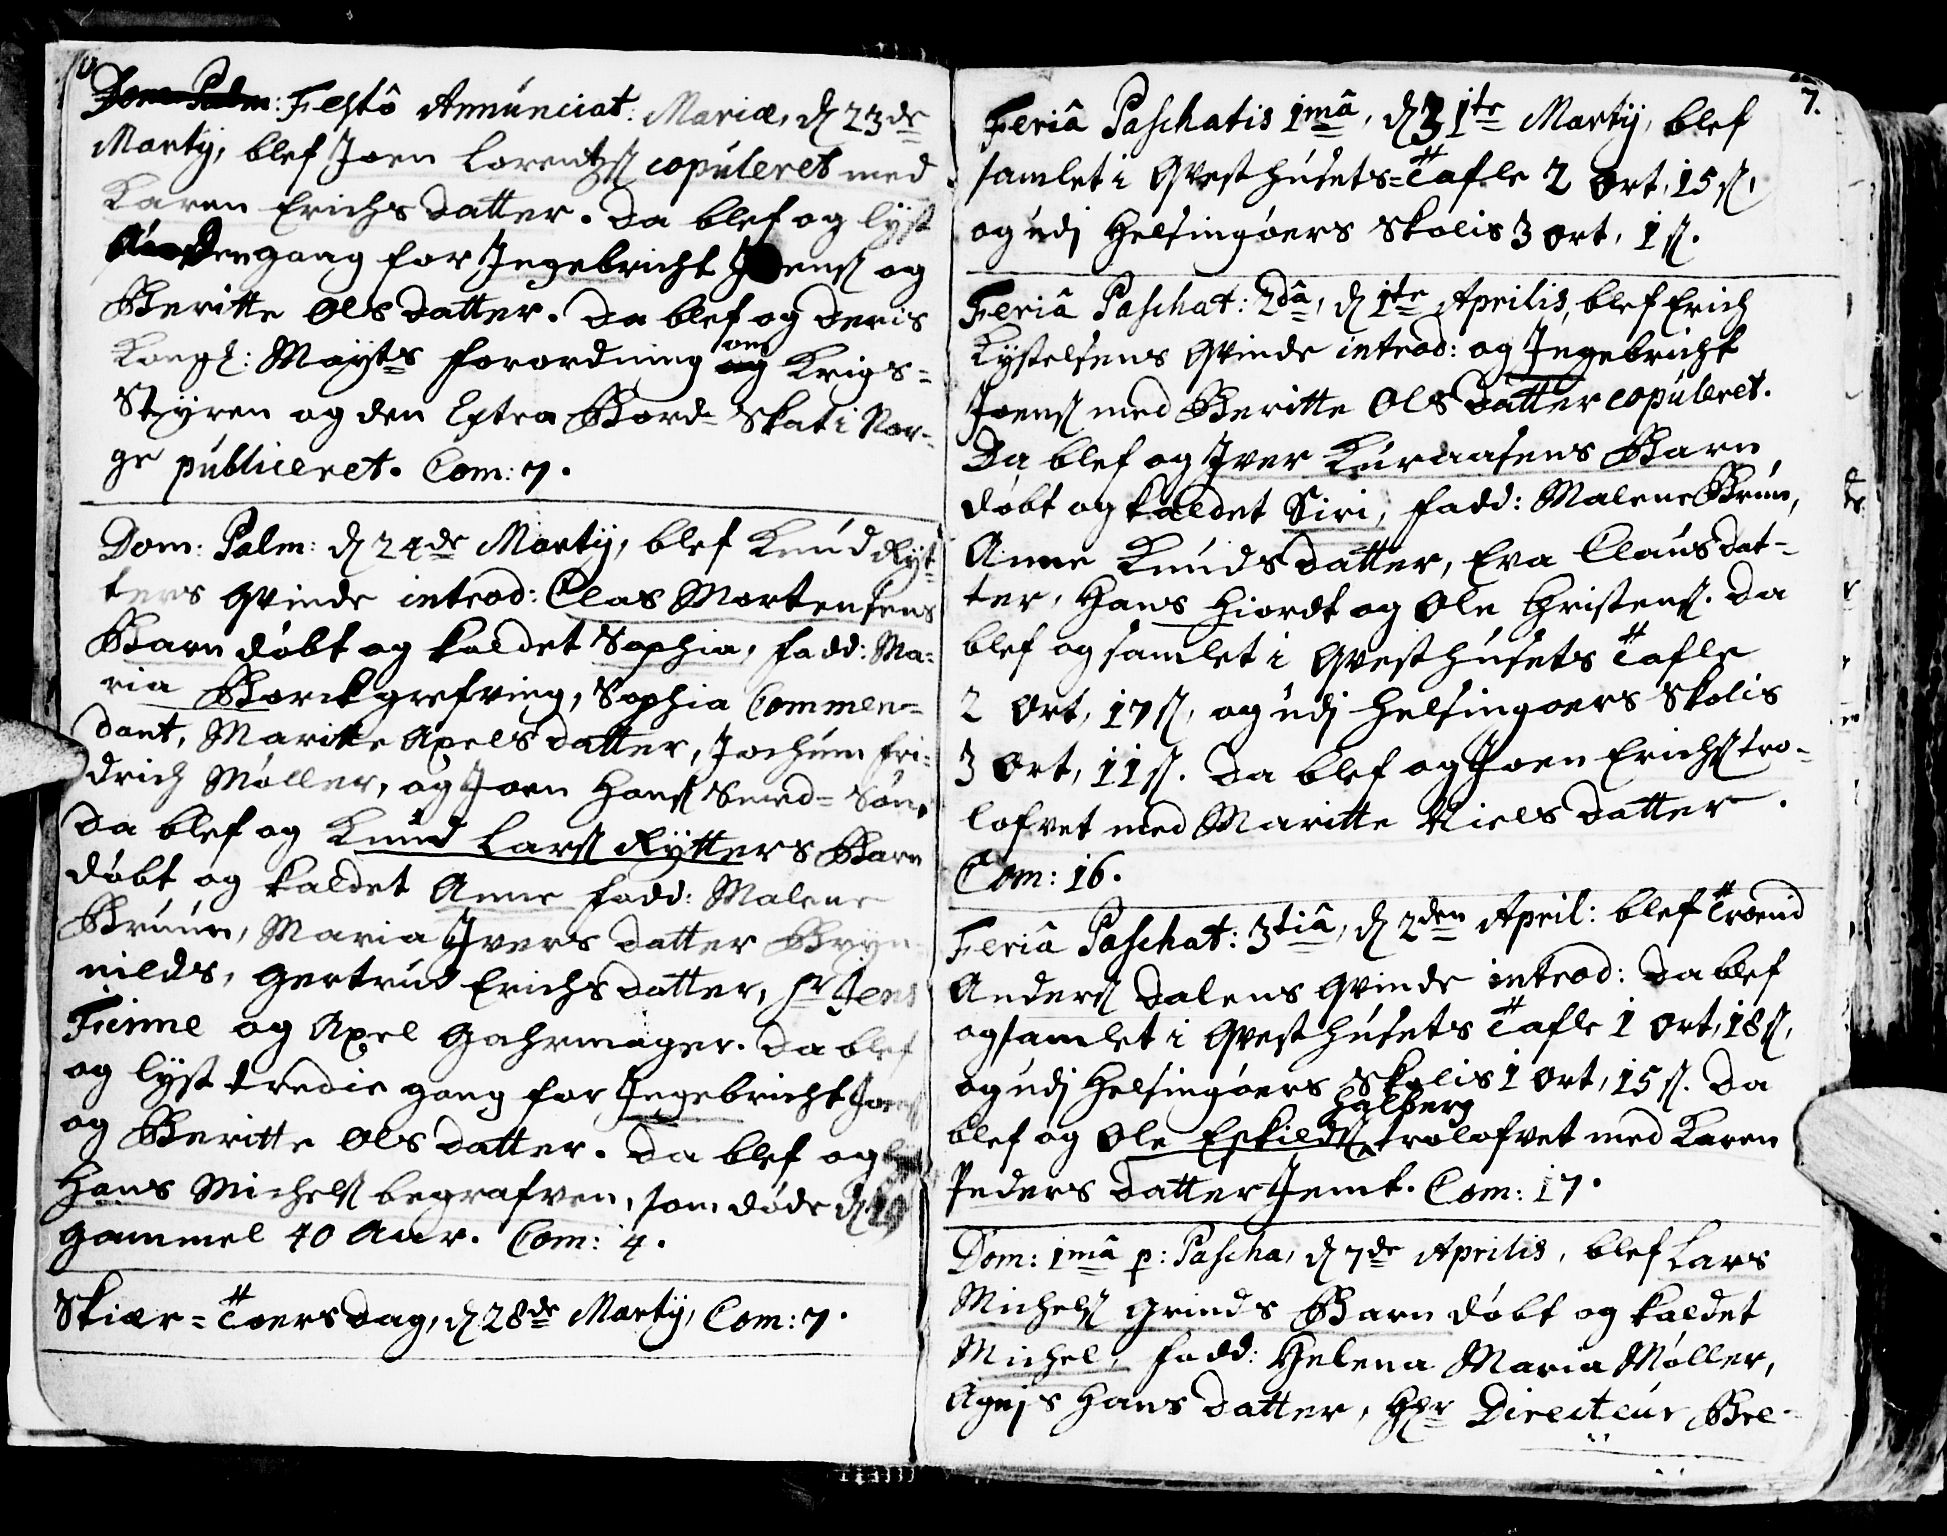 Dom: Palm: Festô Annúnciat: Mariæ, d 23de
Martij, blef Joen Lorentzs copúleret med
Karen Erichs datter. Da blef og lyst
anden gang for Jngebricht Joens og
Beritte Ols datter. Da blef og Deris
Kongl: Mayts forordning om Krigs=
Styren og den Extra Bord= Skat i Nor-
ge públiceret. Com: 7.
Dom: Palm: d 24de Martij, blef Knúd Ryt-
ters Qvinde introd: Clas Mortensens
Barn døbt og kaldet Sophia, fadd: Ma-
ria Borckgrefving, Sophia Commen-
dant, Maritte Axels datter, Jochúm Fri-
drich Møller, og Joen Hans Smed= Søn.
Da blef og Knúd Lars Rytters Barn
døbt og kaldet Anne fadd: Malene
Brúún, Maria Jvers datter Bryn-
nilds, Gertrud Erichs datter, Hr Jens
Finne og Axel Gahrmager. Da blef
og lyst tredie gang for Jngebricht Joens
og Beritte Ols datter. Da blef og
Hans Michels begrafven, som døde d 19
gammel 40 Aar. Com: 4.
Skiær= Toersdag, d 28de Martij, Com: 7.
7.
Feriâ Paschatis 1mâ, d 31te Martij, blef
samlet i Qvesthúsets= Tafle 2 Ort, 15 s,
og udj Helsingøers Skolis 3 Ort, 1 s.
Feriâ Paschat: 2dâ, d 1te Aprilis, blef Erich
Kystelsens Qvinde introd: og Jngebricht
Joens med Beritte Ols datter copúleret.
Da blef og Jver Kúraasens Barn
døbt og kaldet Siri, fadd: Malene Brún,
Anne Knúds datter, Eva Claús dat-
ter, Hans Hiordt og Ole Christens. Da
blef og samlet i Qvesthúsets Tafle
2 Ort, 17 s, og udj Helsingøers Skolis
3 Ort, 11 s. Da blef og Joen Erichs tro-
lofvet med Maritte Niels datter.
Com: 16.
Feriâ Paschat: 3tiâ, d 2den April: blef Troend
Anders Dalens Qvinde introd: Da blef
og samlet i Qvesthúsets Tafle 1 Ort, 18 s,
og udj Helsingøers Skolis 1 Ort, 15 s. Da
Halberg
blef og Ole Eskilds trolofvet med Karen
Peders datter Jemt. Com: 17.
Dom: 1mâ p: Pascha, d 7de Aprilis, blef Lars
Michels Grinds Barn døbt og kaldet
Michel, fadd: Helena Maria Møller,
Agnis Hans datter, Hr Directeúr Bre-